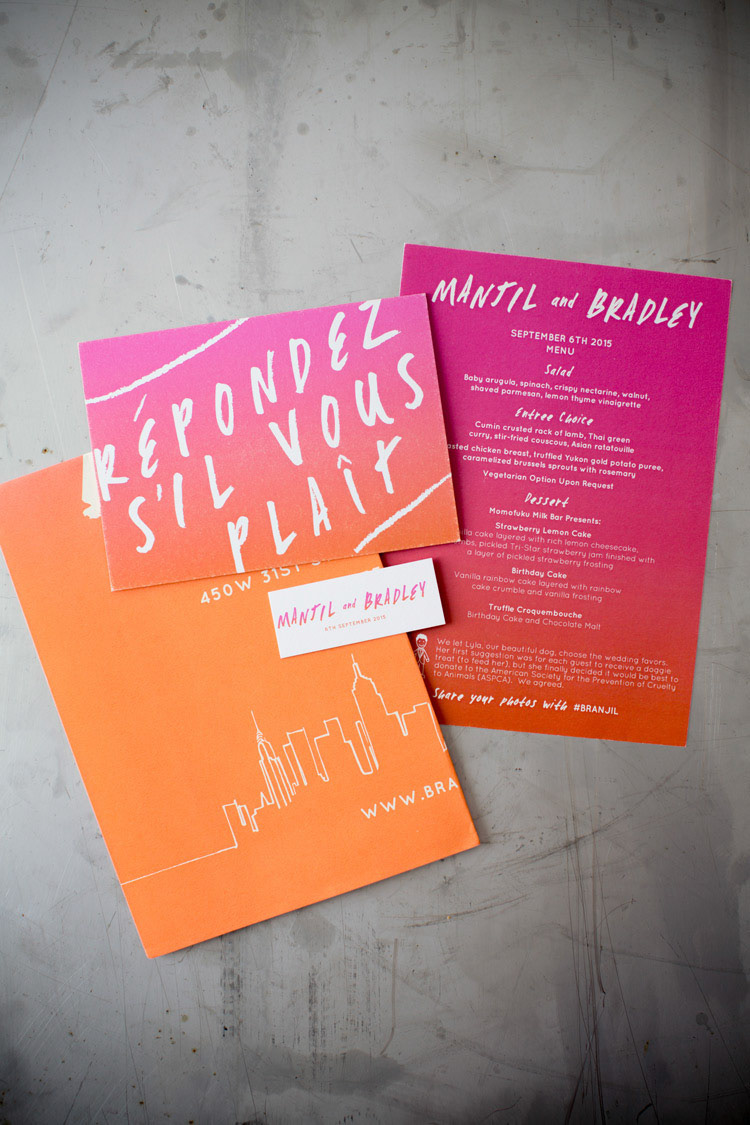 RÉPONDEZ
S'IL VOUS
PLAÎT
MANJIL and BRADLEY
SEPTEMBER 6TH 2015
MENU
Salad
Baby arugula, spinach, crispy nectarine, walnut,
shaved parmesan, lemon thyme vinaigrette
Entree Choice
Cumin crusted rack of lamb, Thai green
curry, stir-fried couscous, Asian ratatouille
chicken breast, truffled Yukon gold potato puree,
caramelized brussels sprouts with rosemary
Vegetarian Option Upon Request
Dessert
Momofuku Milk Bar Presents:
Strawberry Lemon Cake
cake layered with rich lemon cheesecake,
pickled Tri-Star strawberry jam finished with
a layer of pickled strawberry frosting
Birthday Cake
Vanilla rainbow cake layered with rainbow
cake crumble and vanilla frosting
Truffle Croquembouche
Birthday Cake and Chocolate Malt
We let Lyla, our beautiful dog, choose the wedding favors.
Her first suggestion was for each guest to receive a doggie
treat (to feed her), but she finally decided it would be best to
donate to the American Society for the Prevention of Cruelty
to Animals (ASPCA). We agreed.
Share your photos with #BRANJIL
450W 31ST
MANJIL and BRADLEY
6TH SEPTEMBER 2015
WWW.BRA